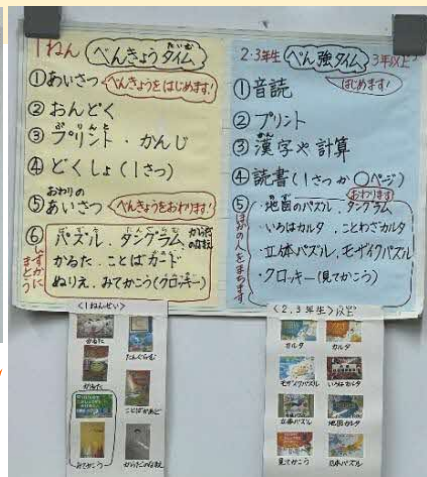 1ねん べんきょうタイム
①あいさつ べんきょうをはじめます!
②おんどく
③プリント・かんじ
④どくしょ(1さつ)
おわりの
⑤あいさつ べんきょうをおわります!
⑥パズル.タングラム.からだのなまえ
かるた.ことばカード
ぬりえ.みてかこう(クロッキー)
しずかにまとう
2・3年生 べん強タイム 3年以上
はじめます!
①音読
②プリント
③漢字や計算
④読書(1さつか〇ページ)
おわります!
⑤・地図のパズル.タングラム
・いろはカルタ.ことわざカルタ
・立体パズル.モザイクパズル
・クロッキー(見てかこう)
ほかの人をまちます
〈1ねんせい〉
かるた
たんぐらむ
かるた
ことばかあど
みてかこう
からだのなまえ
〈2.3年生〉以上
カルタ カルタ
モザイクパズル いろはカルタ
立体パズル 地図カルタ
見てかこう